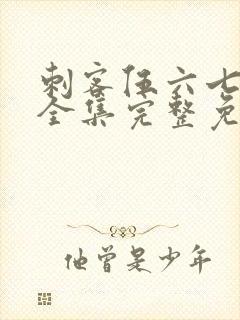 刺客伍六七
全集完整免
他曾是少年